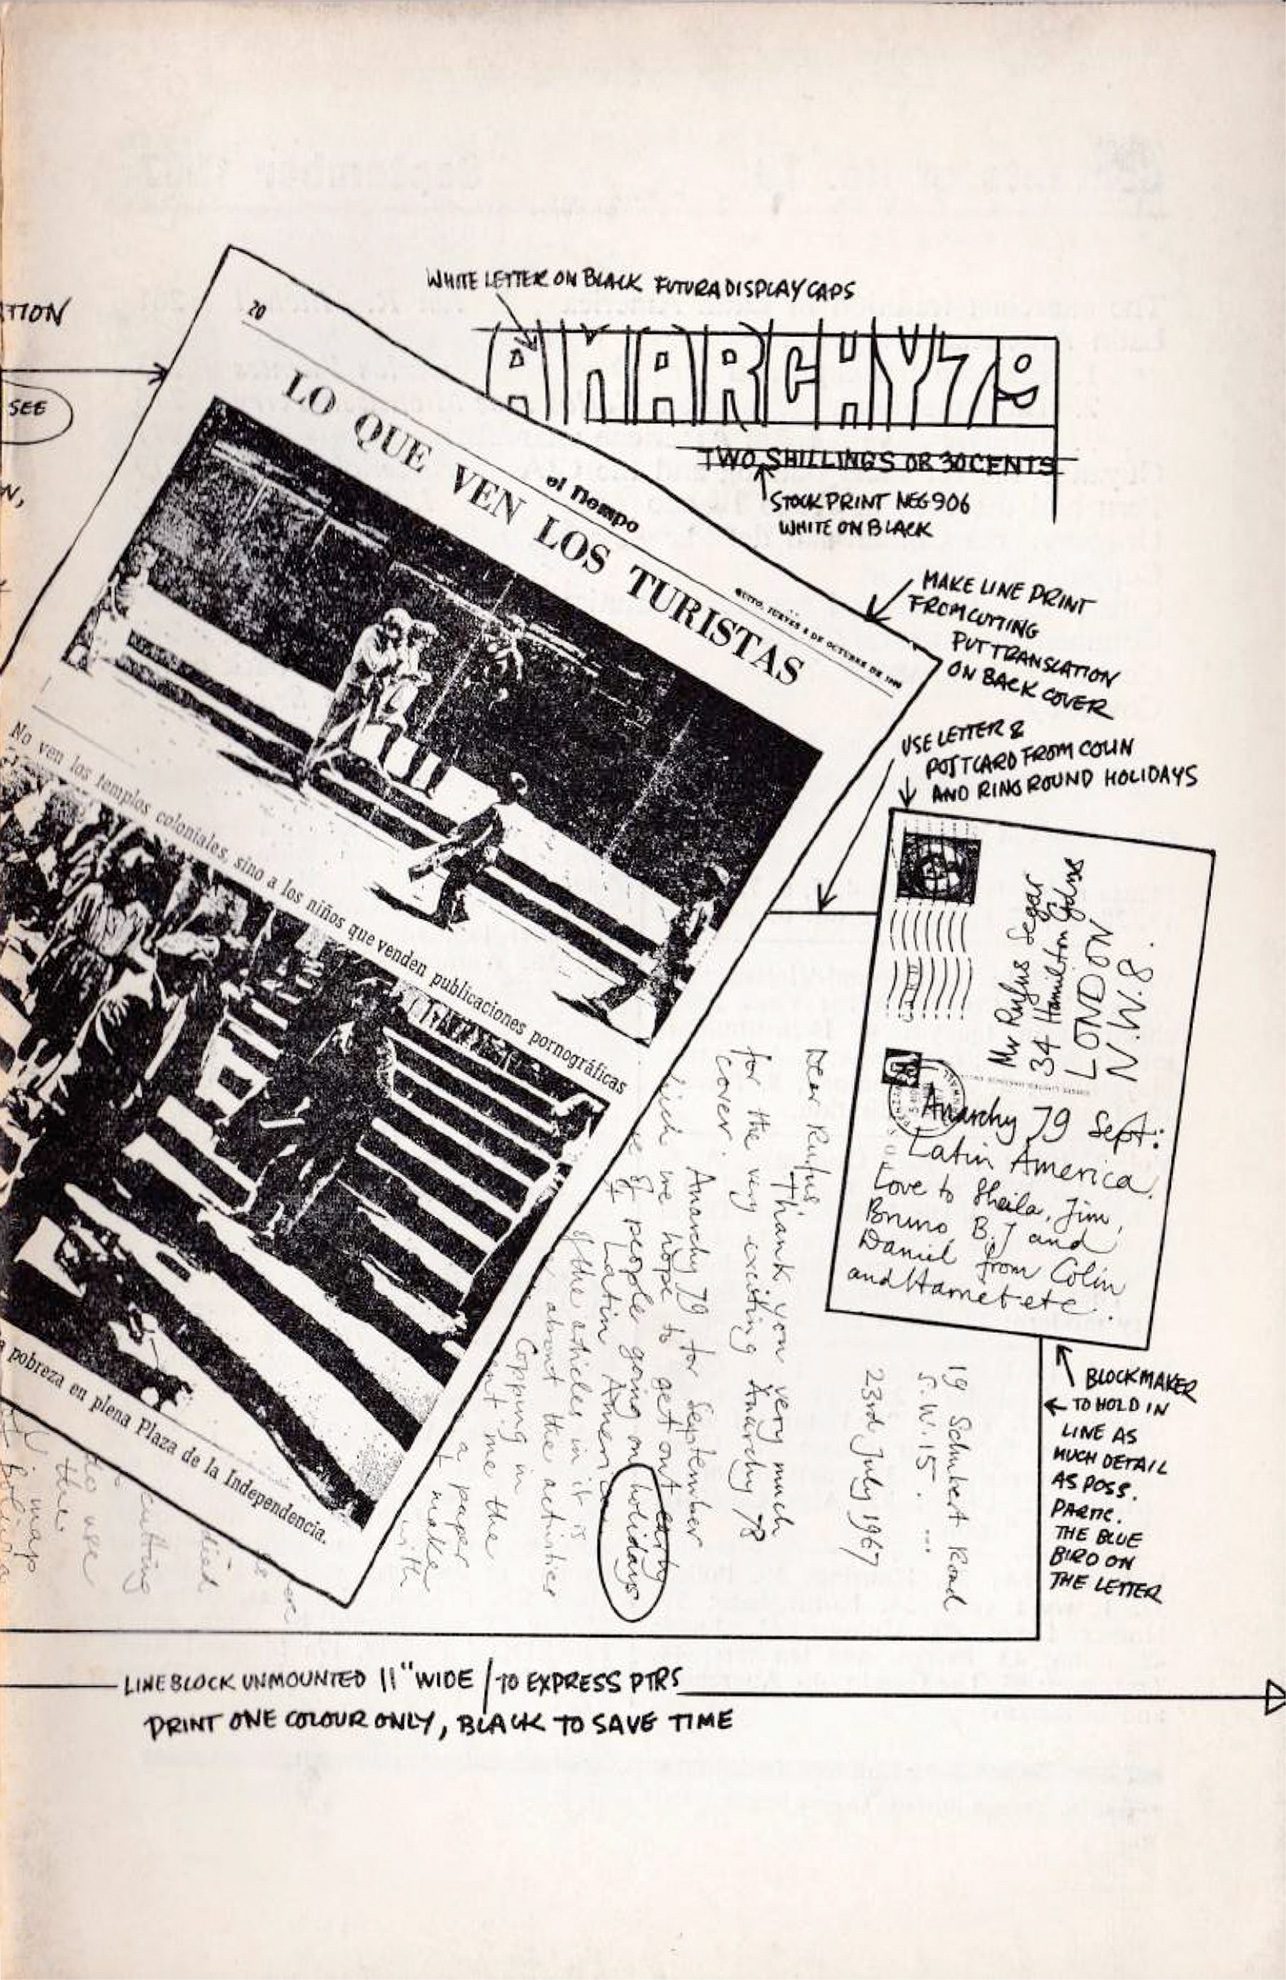 TION
SEE
WHITE LETTER ON BLACK FUTURA DISPLAY CAPS
ANARCHY 79
TWO SHILLINGS OR 30 CENTS
STOCK PRINT NEG 906
WHITE ON BLACK
20
el tiempo
QUITO, JUEVES 6 DE OCTUBRE DE
LO QUE VEN LOS TURISTAS
No ven los templos coloniales, sino a los niños que venden publicaciones pornográficas
pobreza en plena Plaza de la Independencia.
MAKE LINE PRINT
FROM CUTTING
PUT TRANSLATION
ON BACK COVER
USE LETTER &
POSTCARD FROM COLIN
AND RING ROUND HOLIDAYS
Mr Rufus Segar
34 Hamilton Gdns
LONDON
N.W.8.
Anarchy 79 Sept:
Latin America.
Love to Sheila, Jim,
Bruno, B.J and
Daniel from Colin
and Harriet etc.
19 Schubert Road
S.W.15. ...
23rd July 1967
Dear Rufus,
Thank you very much
for the very exciting Anarchy 78
cover.
Anarchy 79 for September
which we hope to get out early
of people going on holidays
Latin America
of the articles in it is
about the activities
Copping in
me the
a paper
maker
with
died
cutting
to use
the
map
Bolivia
BLOCKMAKER
TO HOLD IN
LINE AS
MUCH DETAIL
AS POSS.
PARTIC.
THE BLUE
BIRD ON
THE LETTER
LINE BLOCK UNMOUNTED 11" WIDE / TO EXPRESS PTRS
PRINT ONE COLOUR ONLY, BLACK TO SAVE TIME